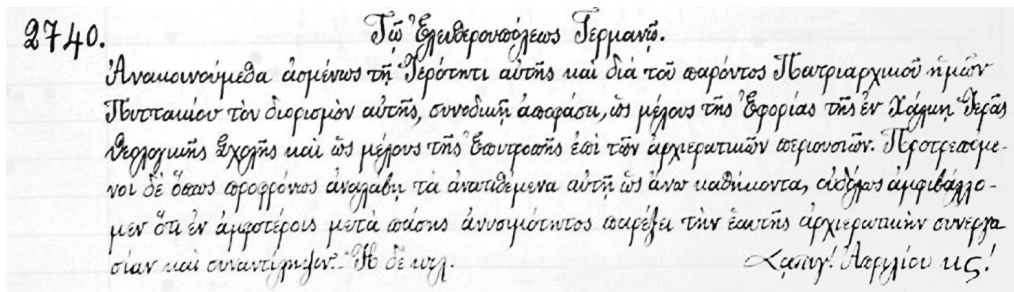 2740. Τῷ Ἐλευθερουπόλεως Γερμανῷ.
Ἀνακοινούμεθα ἀσμένως τῇ Ἱερότητι αὐτῆς καὶ διὰ τοῦ παρόντος Πατριαρχικοῦ ἡμῶν
Πιττακίου τὸν διορισμὸν αὐτῆς, συνοδικῇ ἀποφάσει, ὡς μέλους τῆς Ἐφορίας τῆς ἐν Χάλκῃ Ἱερᾶς
Θεολογικῆς Σχολῆς καὶ ὡς μέλους τῆς Ἐπιτροπῆς ἐπὶ τῶν ἀρχιερατικῶν περιουσιῶν. Προτρεπόμε-
νοι δὲ ὅπως προφρόνως ἀναλάβῃ τὰ ἀνατιθέμενα αὐτῇ ὡς ἄνω καθήκοντα, οὐδόλως ἀμφιβάλλο-
μεν ὅτι ἐν ἀμφοτέροις μετὰ πάσης ἀνυσιμότητος παρέξει τὴν ἑαυτῆς ἀρχιερατικὴν συνεργα
σίαν καὶ συναντίληψιν. Ἡ δὲ κτλ. Ἀπριλίου κς!